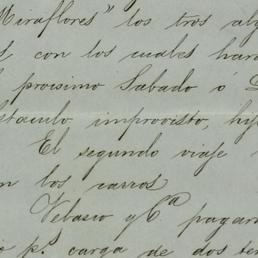 Miraflores" los tros al
con los cuales hara
proxsimo Sabado ó D
staculo improvisto, hy
El segundo viaje
n los carros
Velasco y Cª pagara
o p.r carga de dos ter